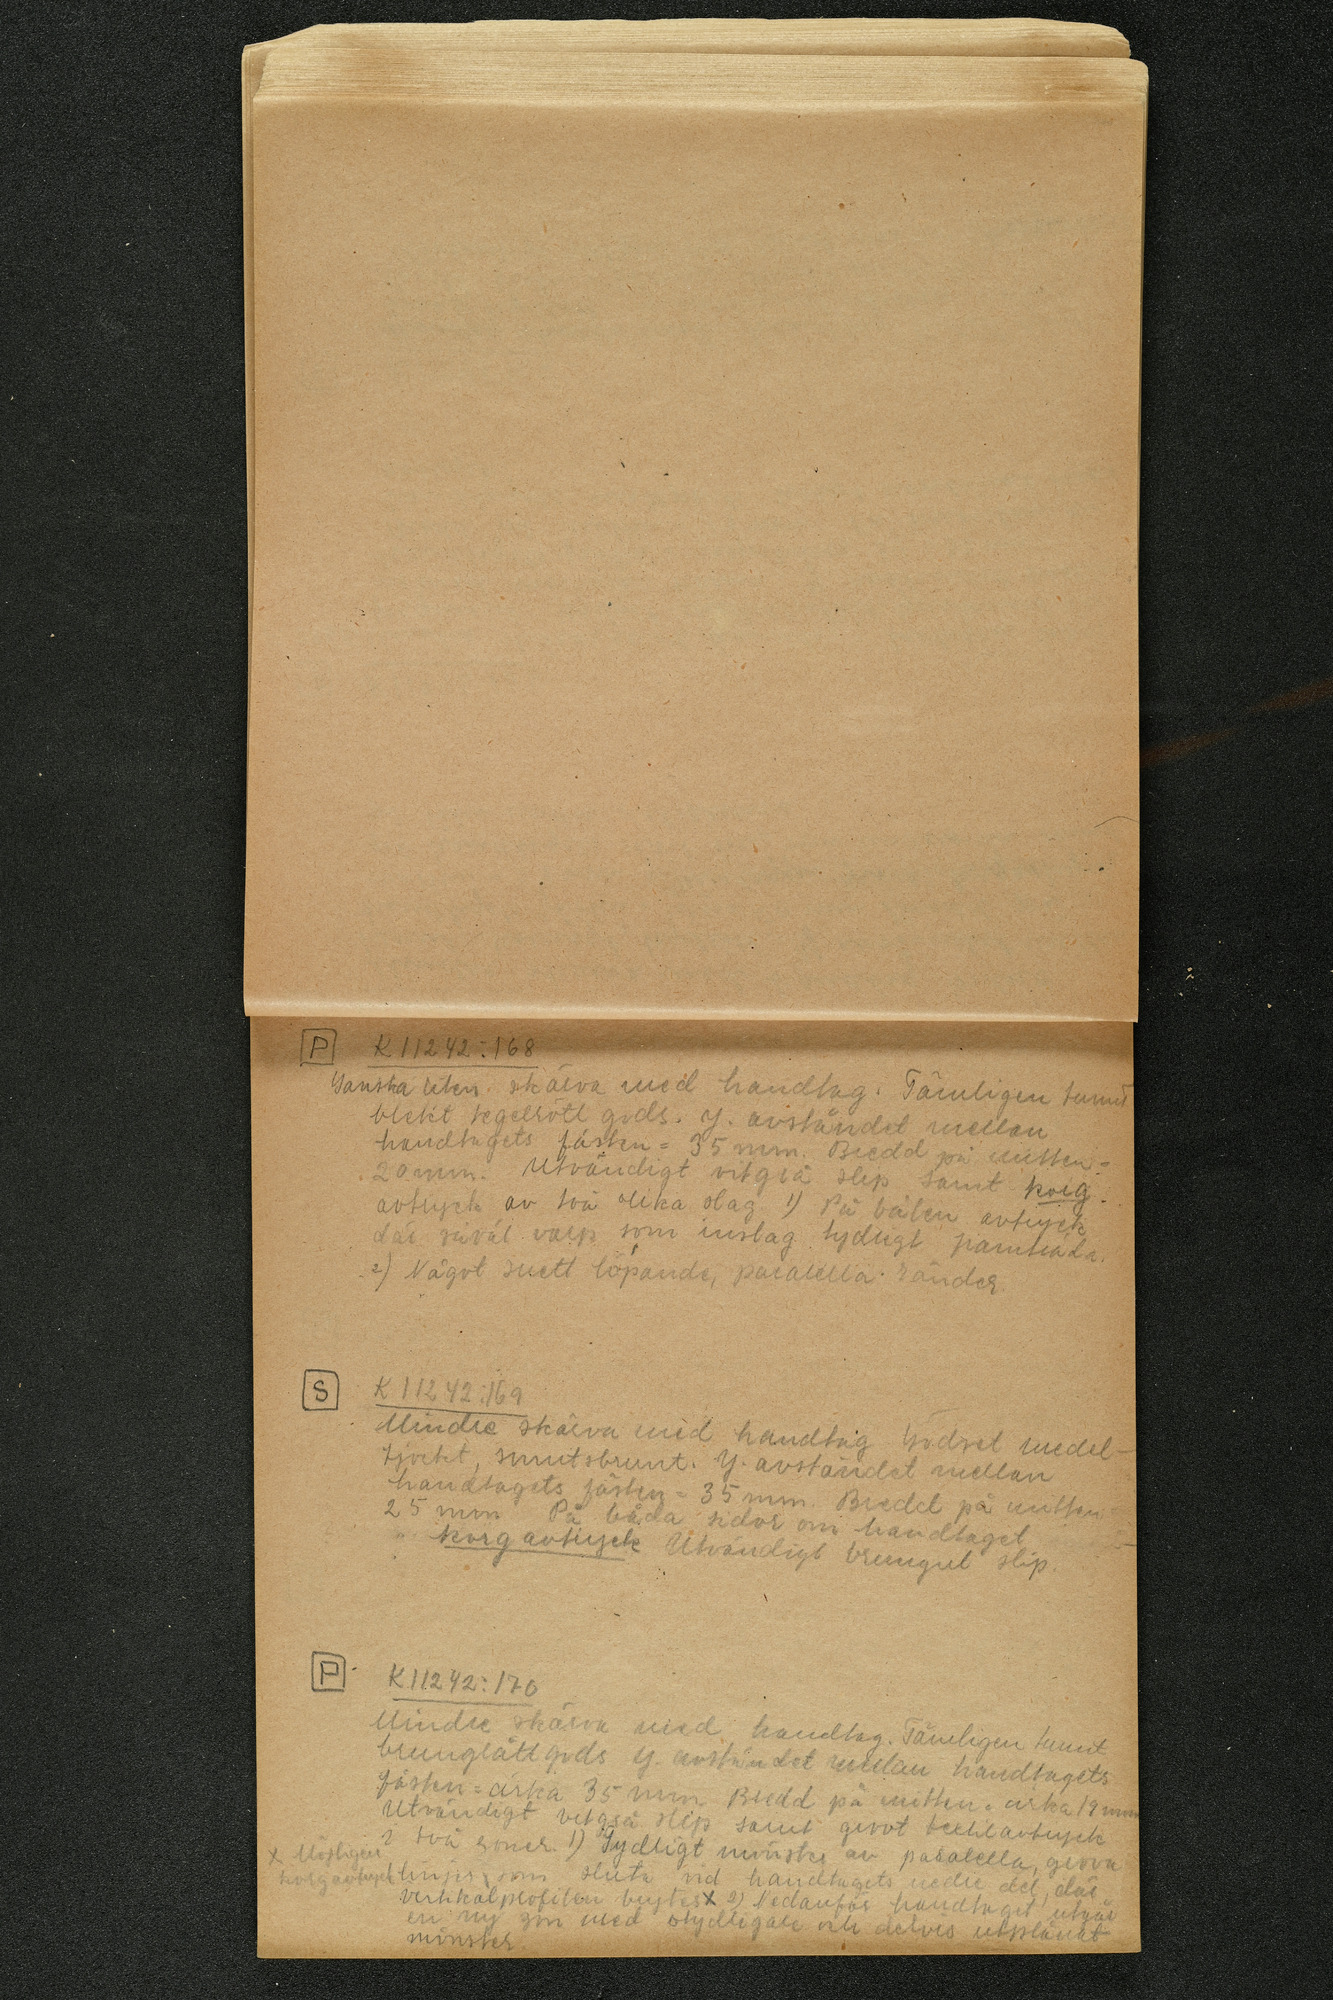 P K 11242:168
Ganska liten skärva med handtag. Tämligen tunnt
blekt tegelrött gods. Y. avståndet mellan
handtagets fästen = 35 mm. Bredd på mitten =
20 mm. Utvändigt vitgrå slip samt korg-
avtryck av två olika slag 1) På bålen avtryck
där såväl varp som inslag tydligt framträda.
2) Något snett löpande, paralella ränder
S K 11242:169
Mindre skärva med handtag Godset medel-
tjockt, smutsbrunt. Y. avståndet mellan
handtagets fästen = 35 mm. Bredd på mitten =
25 mm På båda sidor om handtaget
korgavtryck Utvändigt brungul slip.
P K 11242:170
Mindre skärva med handtag. Tämligen tunnt
brunglätt gods Y. avståndet mellan handtagets
fästen = cirka 35 mm. Bredd på mitten = cirka 19 mm
Utvändigt vitgrå slip samt grovt textilavtryck
i två zoner. 1) Tydligt mönster av paralella, grova
linjer som sluta vid handtagets nedre del, där
vertikalprofilen brytes x 2) Nedanför handtaget utgår
en ny zon med otydligare och delvis utplånat
mönster.
x Möjligen
korgavtryck